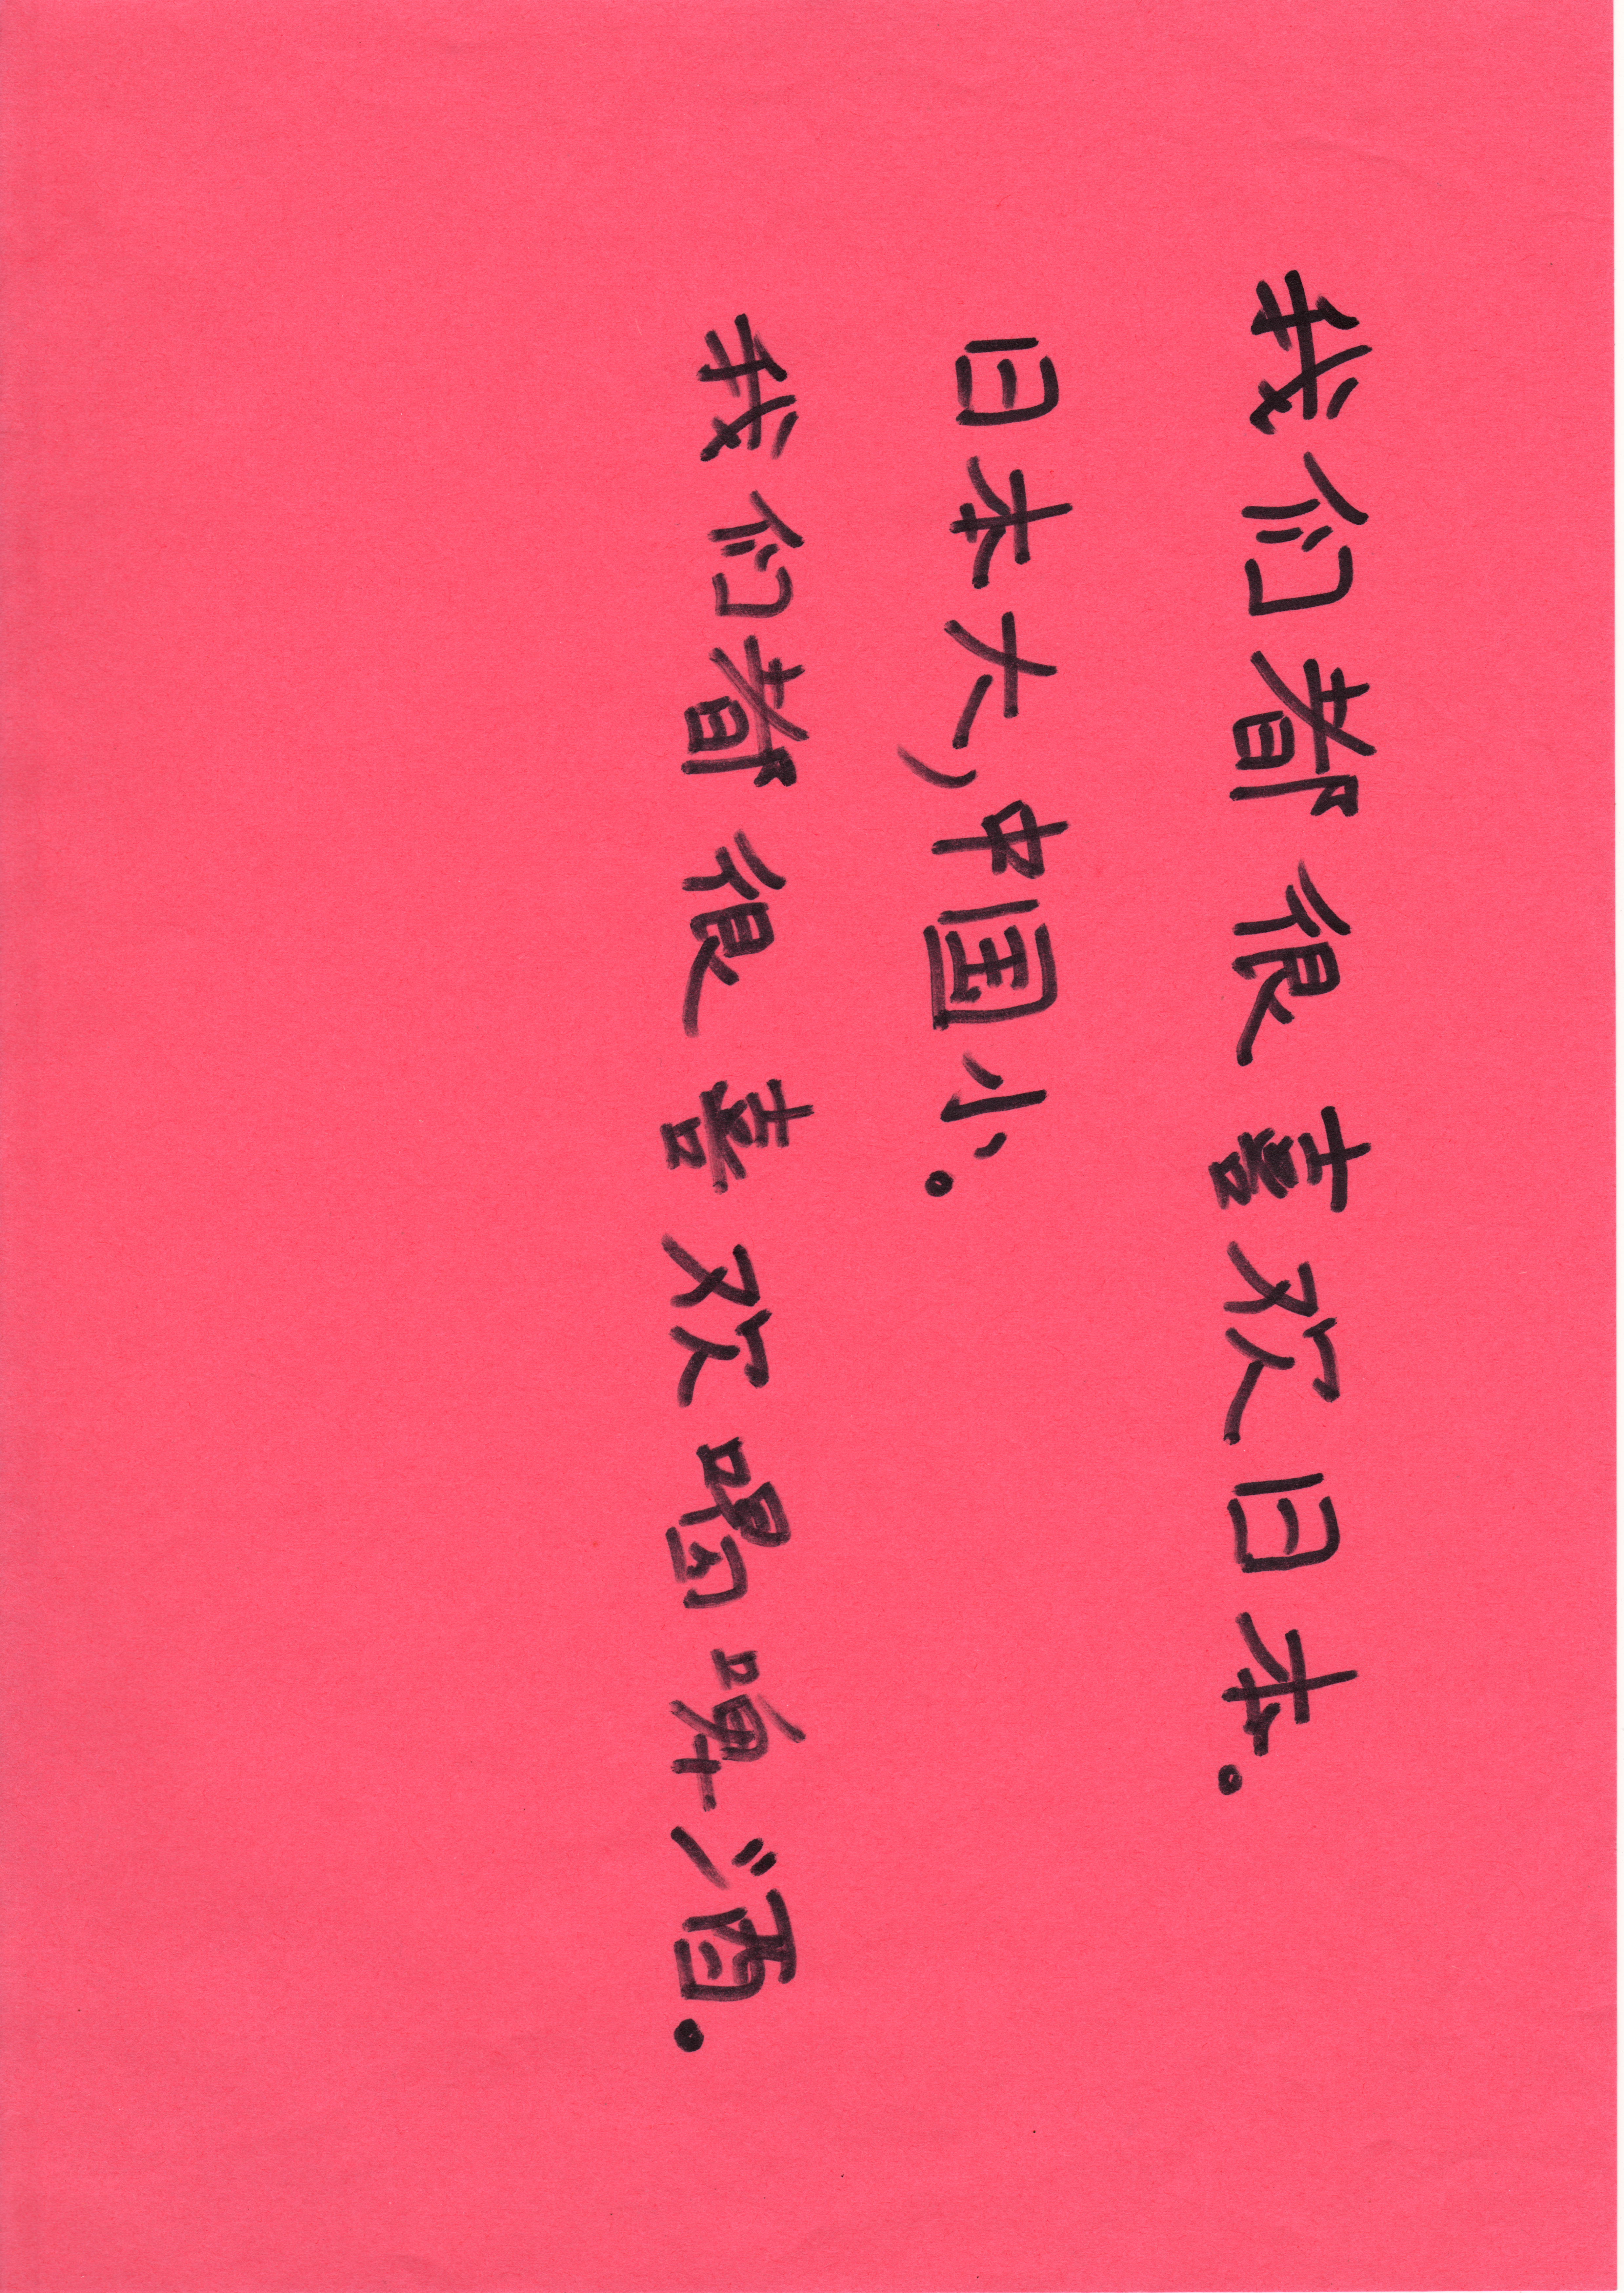 我们都很喜欢日本。
日本大，中国小。
我们都很喜欢喝啤酒。